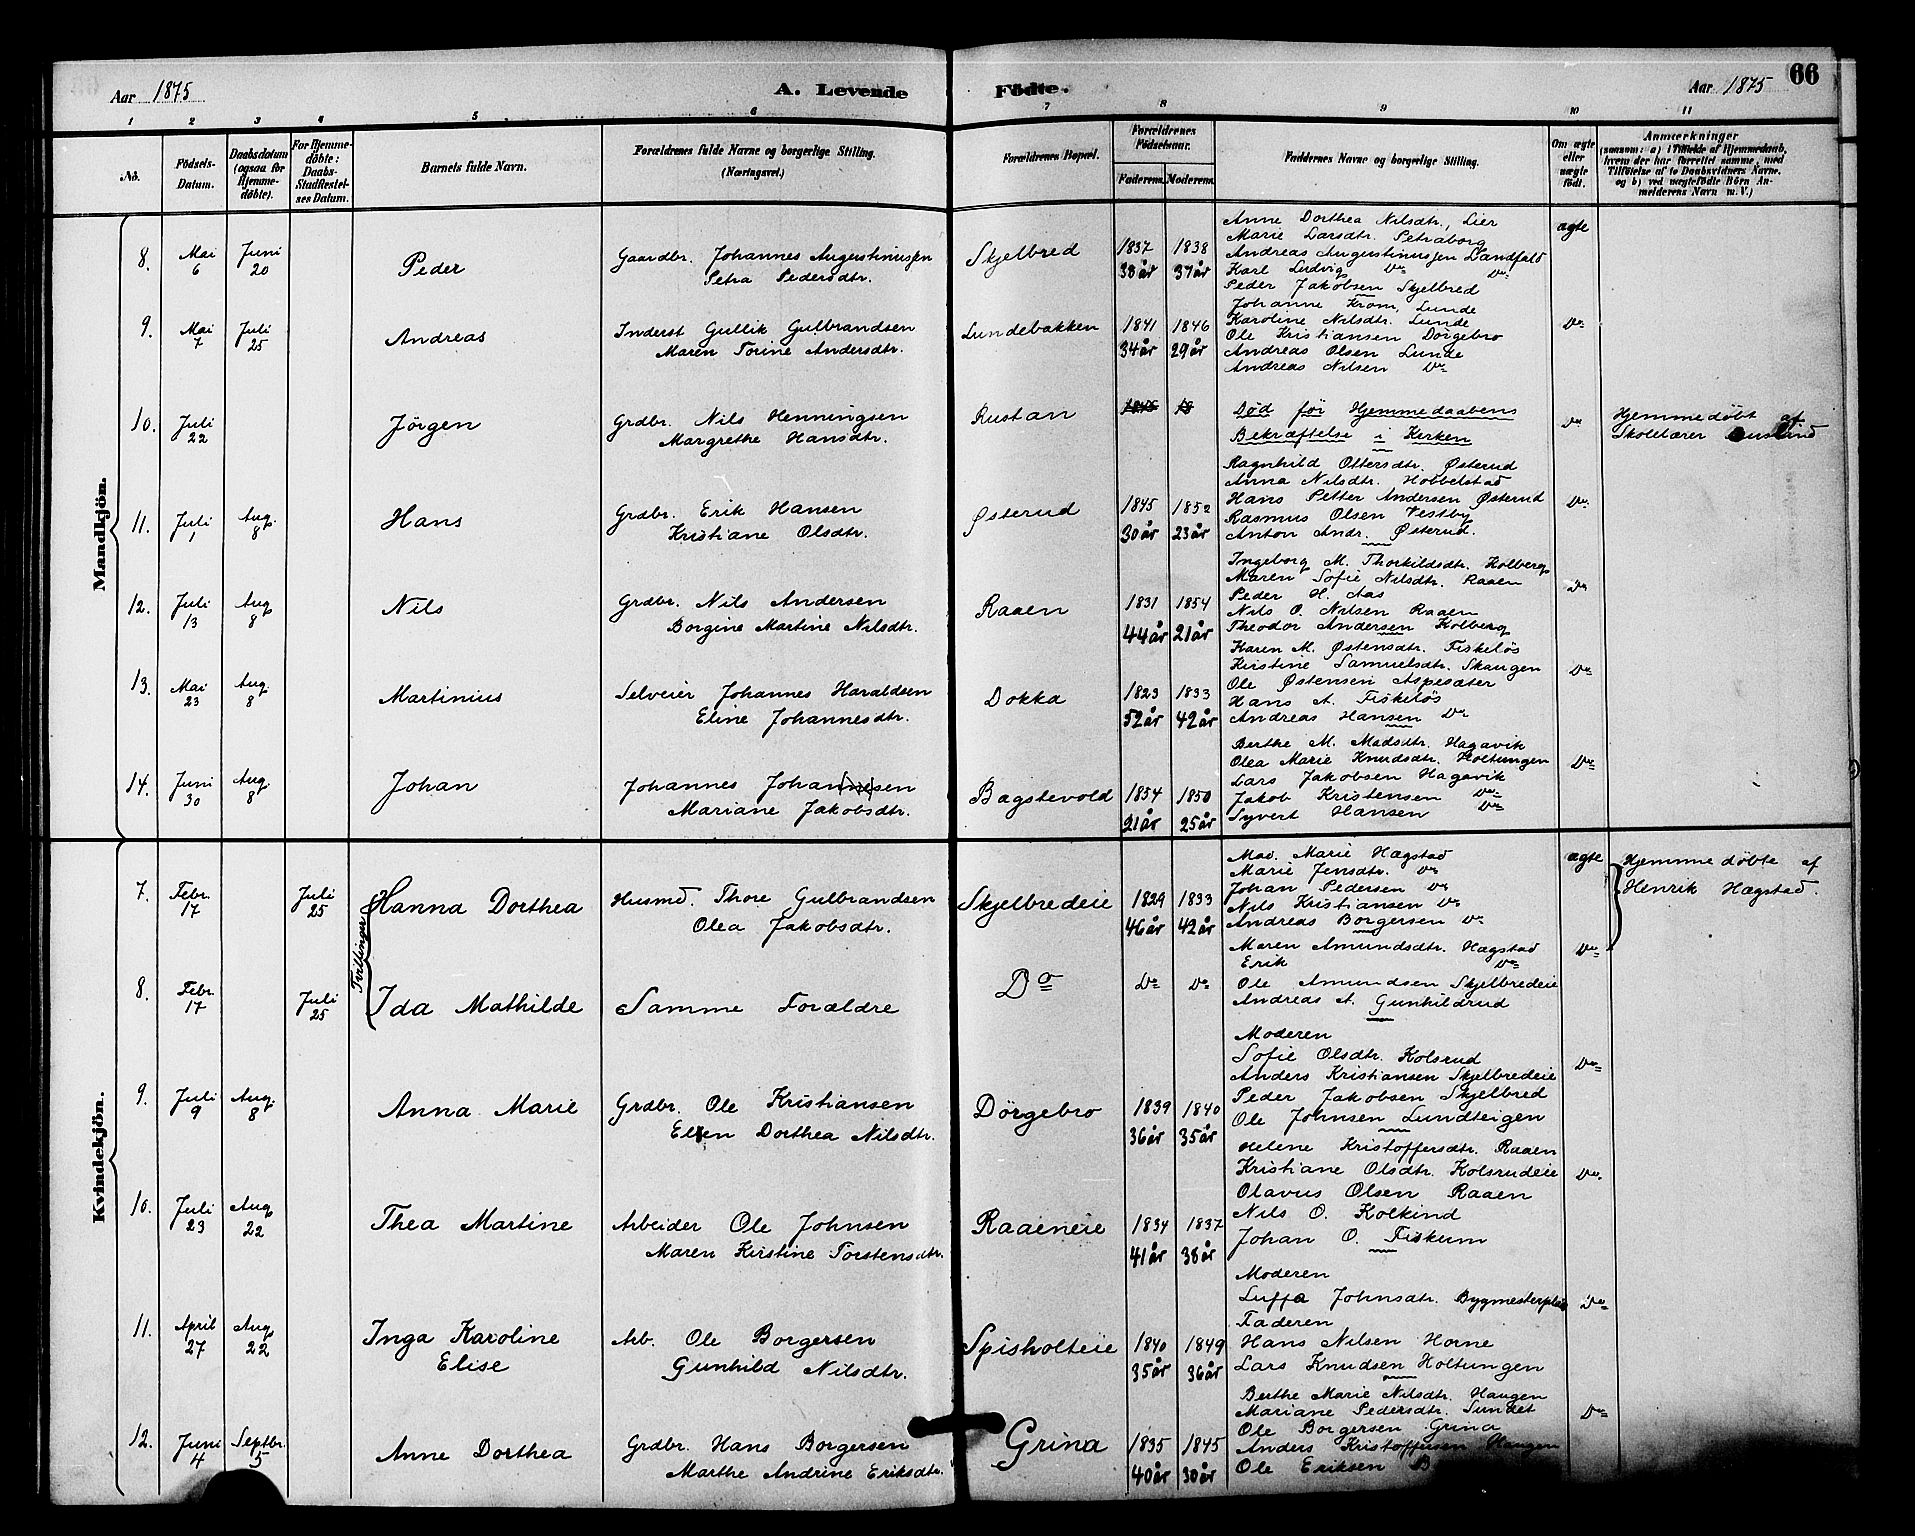 66
Aar 1875
A. Levende
Födte.
Aar 1875
1 2 3 4 5 6 7 8 9 10 11
No.
Födsels-Datum.
Daabsdatum (ogsaa for Hjemme-döbte).
For Hjemme-döbte: Daabs-Stadfæstel-ses Datum.
Barnets fulde Navn.
Forældrenes fulde Navne og borgerlige Stilling. (Næringsvei.)
Forældrenes Bopæl.
Forældrenes Födselsaar.
Faderens. Moderens.
Faddernes Navne og borgerlige Stilling.
Om ægte eller uægte födt.
Anmærkninger
(saasom: a) i Tilfælde af Hjemmedaab, hvem der har forrettet samme, med Tilföielse af to Daabsvidners Navne, og b) ved uægtefödte Börn An-melderens Navn m. V.)
Mandkjön.
8. Mai 6 Juni 20 Peder
Gaardbr. Johannes Augustinussen
Petra Pedersdtr.
Skjelbred
1837 1838
38 år 37 år
Anne Dorthea Nilsdtr., Lier
Marie Larsdtr. Petraborg
Andreas Augustinussen Landfald
Karl Ludvig Do Do
Peder Jakobsen Skjelbred
ægte
9. Mai 7 Juli 25 Andreas
Inderst Gullik Gulbrandsen
Maren Torine Andersdtr.
Lundebakken
1841 1846
34 år 29 år
Johanne Krom, Lunde
Karoline Nilsdtr. Lunde
Ole Kristiansen Dörgebro
Andreas Olsen Lunde
Andreas Nilsen Do
Do
10. Juli 22 Jörgen
Grdbr. Nils Henningsen
Margrethe Hansdtr.
Rustan
Död för Hjemmedaabens
Bekræftelse i Kirken
Do
Hjemmedöbt af
Skolelærer
11. Juli 1 Aug. 8 Hans
Grdbr. Erik Hansen
Kristiane Olsdtr.
Østerud
1845 1852
30 år 23 år
Ragnhild Ottersdtr. Østerud
Anna Nilsdtr. Hobbelstad
Hans Petter Andersen Østerud
Rasmus Olsen Vestby
Anton Andr. Østerud.
Do
12. Juli 13 Aug 8 Nils
Grdbr. Nils Andersen
Borgine Martine Nilsdtr.
Raaen
1831 1854
44 år 21 år
Ingeborg M. Thorkildsdtr. Kolberg
Maren Sofie Nilsdtr. Raaen
Peder H. Aas
Nils O. Nilsen Raaen
Theodor Andersen Kolberg
Do
13. Mai 23 Aug. 8 Martinius
Selveier Johannes Haraldsen
Eline Johannesdtr.
Dokka
1823 1833
52 år 42 år
Karen M. Østensdtr. Fiskelös
Kirstine Samuelsdtr. Skaugen
Ole Østensen Aspesæter
Hans A. Fiskelös
Andreas Hansen Do
Do
14. Juni 30 Aug. 8 Johan
Johannes Johannesen
Mariane Jakobsdtr.
Bagstevold
1854 1850
21 år 25 år
Berthe M. Madsdtr. Hagavik
Olea Marie Knudsdtr. Holtungen
Lars Jakobsen Hagavik
Jakob Kristensen Do
Syvert Hansen Do
Do
Kvindekjön.
7. Febr. 17 Juli 25 Hanna Dorthea
Tvillinger
Husmd. Thore Gulbrandsen
Olea Jakobsdtr.
Skjelbredeie
1829 1833
46 år 42 år
Mad. Marie Hægstad
Marie Jensdtr. Do
Johan Pedersen Do
Nils Kristiansen Do
Andreas Borgersen Do
ægte
Hjemmedöbte af
Henrik Hægstad.
8. Febr. 17 Juli 25 Ida Mathilde
Samme Forældre
Do
Do Do
Maren Amundsdtr. Hægstad
Erik Do
Ole Amundsen Skjelbredeie
Andreas A. Gunhildrud
Do
9. Juli 9 Aug. 8 Anna Marie
Grdbr. Ole Kristiansen
Ellen Dorthea Nilsdtr.
Dörgebro
1839 1840
36 år 35 år
Moderen
Sofie Olsdtr. Kolsrud
Anders Kristiansen Skjelbredeie
Peder Jakobsen Skjelbred
Ole Johnsen Lundteigen
Do
10. Juli 23 Aug 22 Thea Martine
Arbeider Ole Johnsen
Maren Kirstine Torstensdtr.
Raaeneie
1834 1837
41 år 38 år
Helene Kristoffersdtr. Raaen
Kristiane Olsdtr. Kolsrudeie
Olavus Olsen Raaen
Nils O. Kolkind
Johan O. Fiskum
Do
11. April 27 Aug. 22 Inga Karoline
Elise
Arb. Ole Borgersen
Gunhild Nilsdtr.
Spisholteie
1840 1849
35 år 36 år
Moderen
Luffa Johnsdtr. Bygmesterplds
Faderen
Hans Nilsen Horne
Lars Knudsen Holtungen
Do
12. Juni 4 Septbr. 5 Anne Dorthea
Grdbr. Hans Borgersen
Marthe Andrine Eriksdtr.
Grina
1835 1845
40 år 30 år
Berthe Marie Nilsdtr. Haugen
Mariane Pedersdtr. Sundet
Ole Borgersen Grina
Anders Kristoffersen Haugen
Ole Eriksen
Do